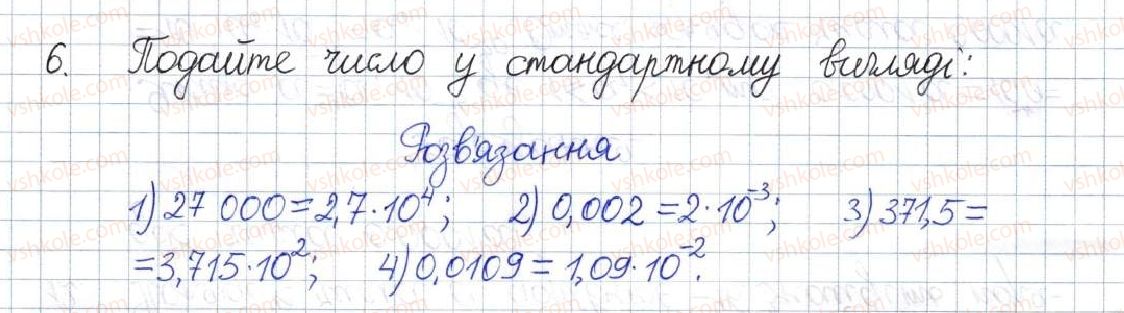 6. Подайте число у стандартному вигляді:
Розв'язання
1) 27 000 = 2,7·10⁴; 2) 0,002 = 2·10⁻³; 3) 371,5 =
= 3,715·10²; 4) 0,0109 = 1,09·10⁻².